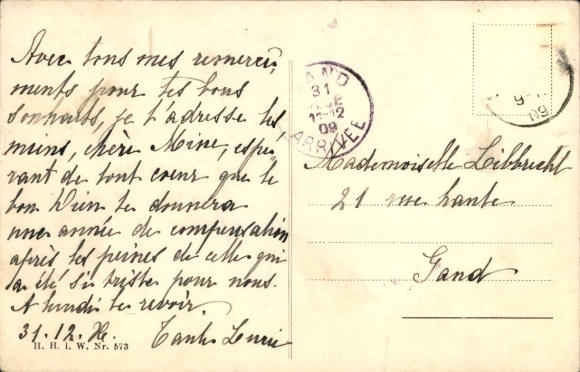 Avec tous mes remercie,
ments pour tes bons
souhaits, je t'adresse les
miens, chère Mine, espé,
rant de tout coeur que le
bon Dieu te donnera
une année de compensation
après les peines de celle qui
a été si triste pour nous.
A lundi le revoir.
31.12.
Tante
H. H. i. W. Nr. 573
GAND
31
11-12
09
ARRIVÉE
9-
09
Mademoiselle Libbrecht
21 rue haute
Gand